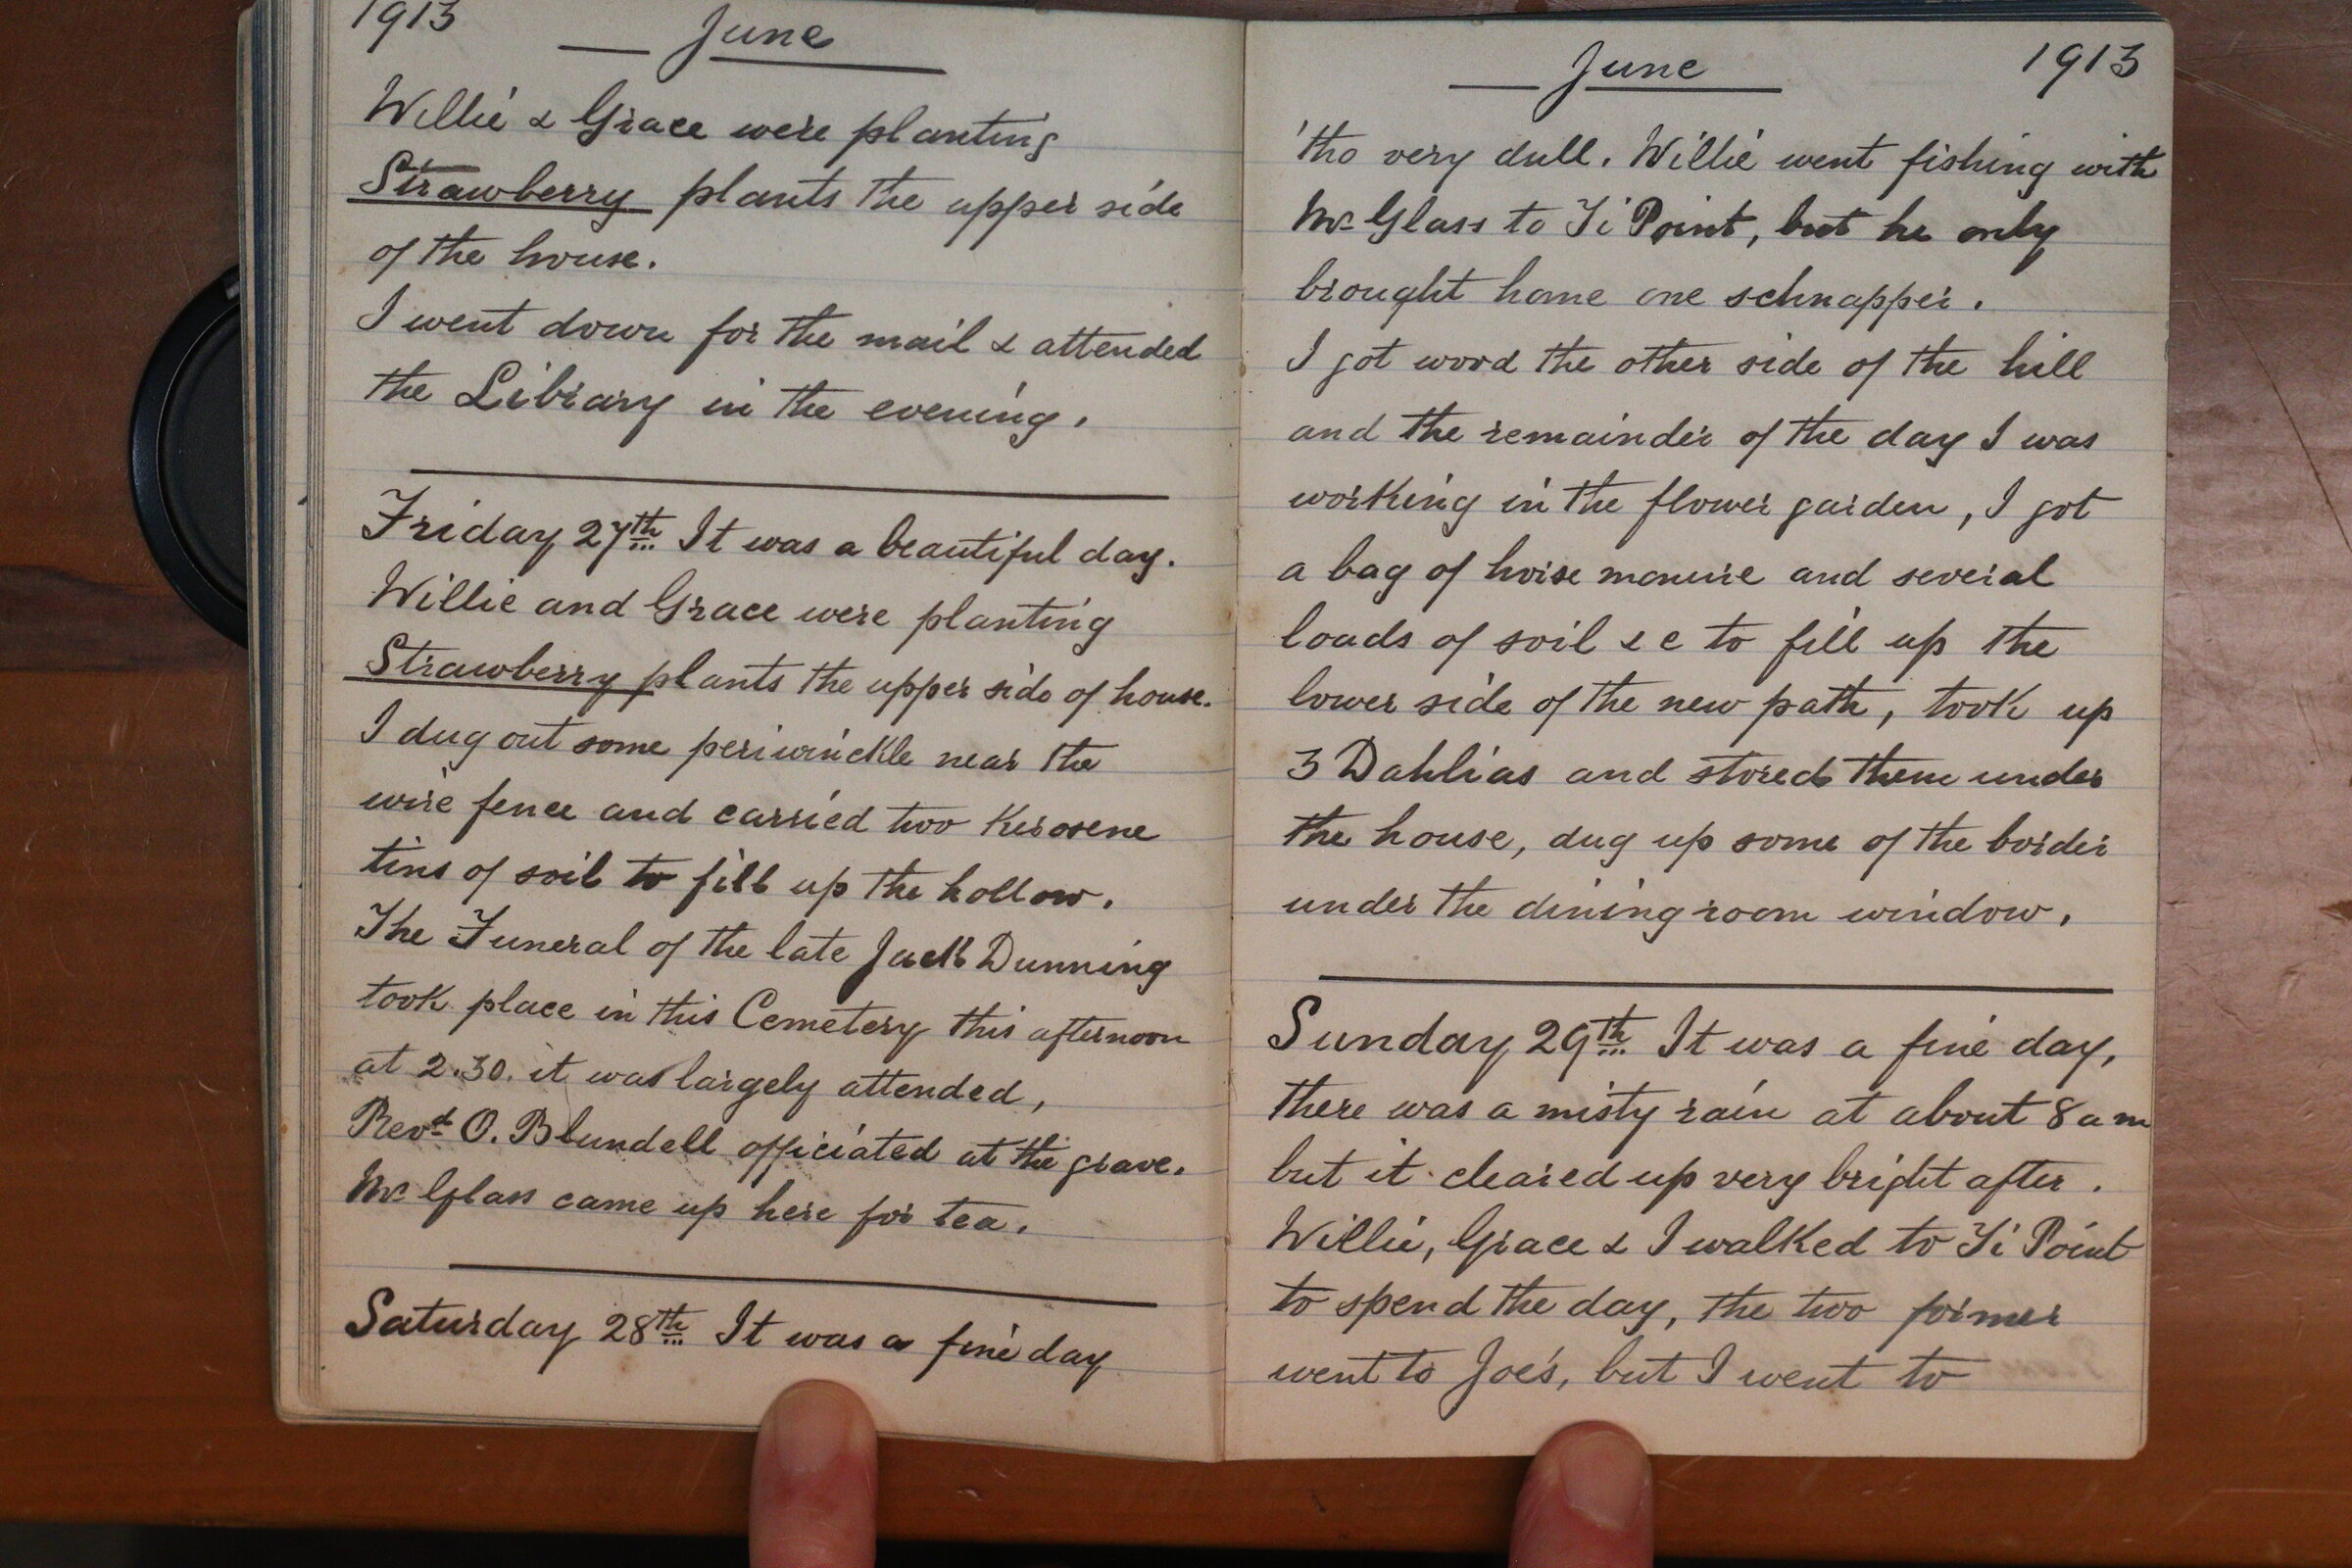 1913
June
Willie & Grace were planting
Strawberry plants the upper side
of the house.
I went down for the mail & attended
the Library in the evening.
Friday 27th It was a beautiful day.
Willie and Grace were planting
Strawberry plants the upper side of house.
I dug out some periwinckle near the
wire fence and carried two Kerosene
tins of soil to fill up the hollow.
The Funeral of the late Jack Dunning
took place in this Cemetery this afternoon
at 2.30. it was largely attended,
Revd O. Blundell officiated at the grave.
Mr Glass came up here for tea.
Saturday 28th It was a fine day
June 1913
'tho very dull. Willie went fishing with
Mr Glass to Ti Point, but he only
brought home one schnapper.
I got wood the other side of the hill
and the remainder of the day I was
working in the flower garden, I got
a bag of horse manure and several
loads of soil &c to fill up the
lower side of the new path, took up
3 Dahlias and stored them under
the house, dug up some of the border
under the dining room window.
Sunday 29th It was a fine day,
there was a misty rain at about 8 am
but it cleared up very bright after.
Willie, Grace & I walked to Ti Point
to spend the day, the two former
went to Joe's, but I went to